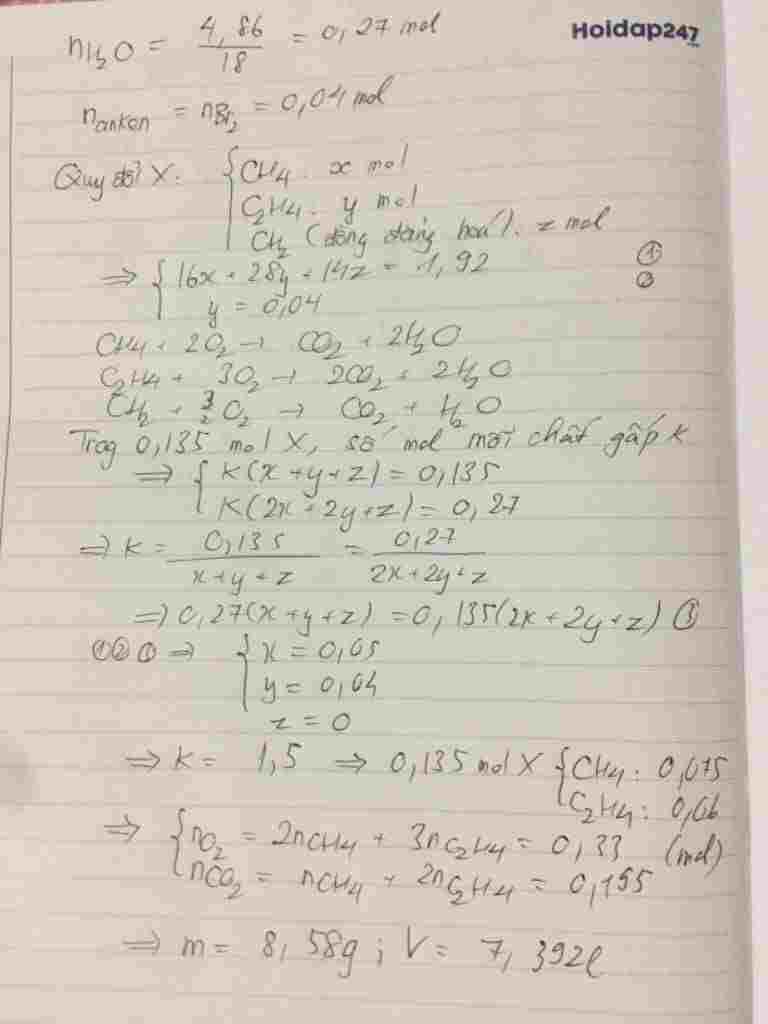 Hoidap247
nH₂O = 4,86/18 = 0,27 mol
n anken = nBr₂ = 0,04 mol
Quy đổi X: { CH₄ . x mol
C₂H₄ . y mol
CH₂ (đồng đẳng hoá). z mol
⇒ { 16x + 28y + 14z = 1,92 ①
y = 0,04 ②
CH₄ + 2O₂ → CO₂ + 2H₂O
C₂H₄ + 3O₂ → 2CO₂ + 2H₂O
CH₂ + 3/2 O₂ → CO₂ + H₂O
Trog 0,135 mol X, số mol mỗi chất gấp k
⇒ { k(x + y + z) = 0,135
k(2x + 2y + z) = 0,27
⇒ k = 0,135/(x + y + z) = 0,27/(2x + 2y + z)
⇒ 0,27(x + y + z) = 0,135(2x + 2y + z) ③
①②① ⇒ { x = 0,05
y = 0,04
z = 0
⇒ k = 1,5 ⇒ 0,135 mol X { CH₄: 0,075
C₂H₄: 0,06
⇒ { nO₂ = 2nCH₄ + 3nC₂H₄ = 0,33 (mol)
nCO₂ = nCH₄ + 2nC₂H₄ = 0,195
⇒ m = 8,58g ; V = 7,392l